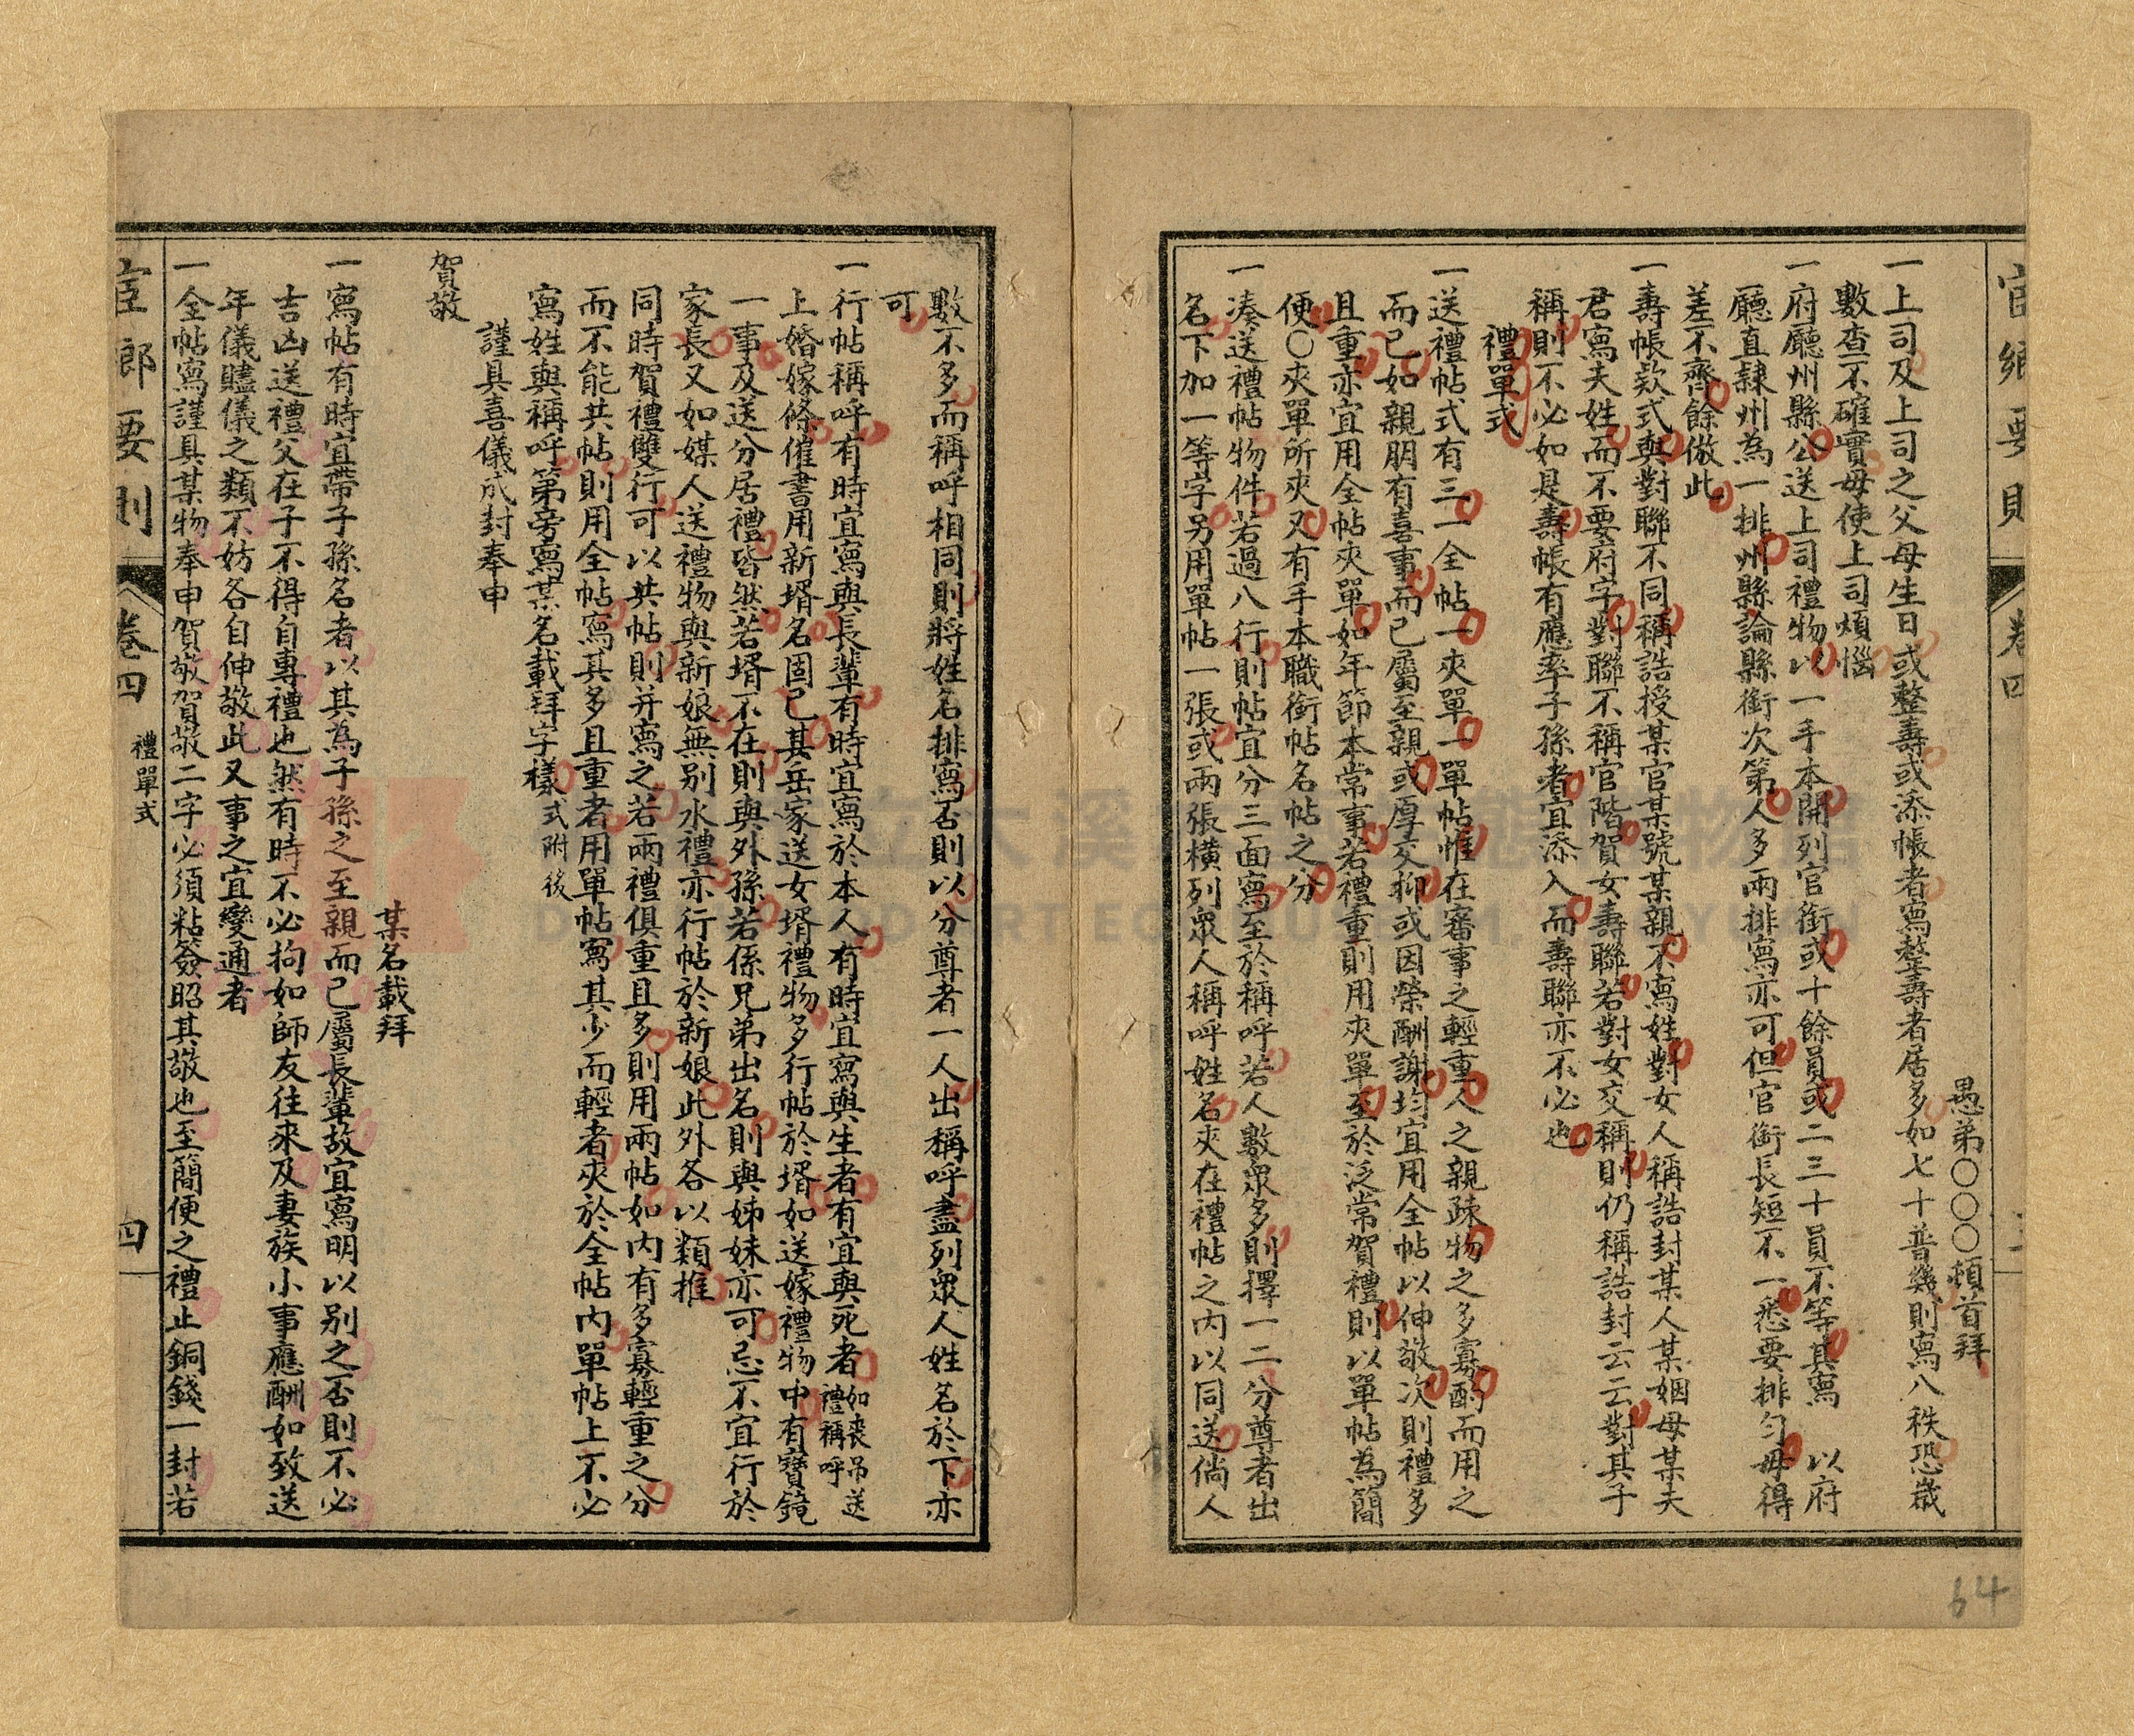 官鄉要則 卷四
愚弟〇〇〇〇頓首拜
一上司及上司之父母生日或整壽或添帳者寫整壽者居多如七十普幾則寫八秩恐歲
數查不確實毋使上司煩惱
一府廳州縣公送上司禮物以一手本開列官銜或十餘員或二三十員不等其寫 以府
廳直隸州為一排州縣論縣銜次第人多兩排寫亦可但官銜長短不一悉要排勻毋得
差不齊餘倣此
一壽帳欵式與對聯不同稱誥授某官某號某親不寫姓對女人稱誥封某人某姻母某夫
君寫夫姓而不要府字對聯不稱官階賀女壽聯若對女交稱則仍稱誥封云云對其子
稱則不必如是壽帳有應率子孫者宜添入而壽聯亦不必也
禮單式
一送禮帖式有三一全帖一夾單一單帖惟在審事之輕重人之親疎物之多寡酌而用之
而已如親朋有喜事而已屬至親或厚交抑或因榮酬謝均宜用全帖以伸敬次則禮多
且重亦宜用全帖夾單如年節本常事若禮重則用夾單至於泛常賀禮則以單帖為簡
便〇夾單所夾又有手本職銜帖名帖之分
一湊送禮帖物件若過八行則帖宜分三面寫至於稱呼若人數衆多則擇一二分尊者出
名下加一等字另用單帖一張或兩張橫列衆人稱呼姓名夾在禮帖之內以同送倘人
數不多而稱呼相同則將姓名排寫否則以分尊者一人出稱呼盡列衆人姓名於下亦
可
一行帖稱呼有時宜寫與長輩有時宜寫於本人有時宜寫與生者有宜與死者如喪吊送禮稱呼
上婚嫁條催書用新壻名固已其岳家送女壻禮物多行帖於壻如送嫁禮物中有寶鏡
一事及送分居禮皆然若壻不在則與外孫若係兄弟出名則與姊妹亦可忌不宜行於
家長又如媒人送禮物與新娘無別水禮亦行帖於新娘此外各以類推
同時賀禮雙行可以共帖則并寫之若兩禮俱重且多則用兩帖如內有多寡輕重之分
而不能共帖則用全帖寫其多且重者用單帖寫其少而輕者夾於全帖內單帖上不必
寫姓與稱呼第旁寫某名載拜字樣式附後
謹具喜儀成封奉申
賀敬
某名載拜
一寫帖有時宜帶子孫名者以其為子孫之至親而已屬長輩故宜寫明以別之否則不必
吉凶送禮父在子不得自專禮也然有時不必拘如師友往來及妻族小事應酬如致送
年儀贐儀之類不妨各自伸敬此又事之宜變通者
一全帖寫謹具某物奉申賀敬賀敬二字必須粘簽昭其敬也至簡便之禮止銅錢一封若
官鄉要則 卷四 禮單式 四
64